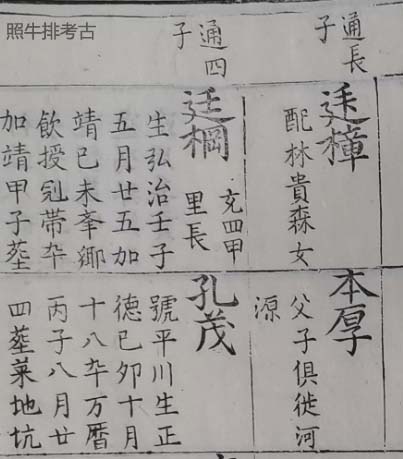 照牛排考古
通長
子
廷樟
配林貴森女
通四
子
廷棡
充四甲
里長
生弘治壬子
五月廿五加
靖已未峯鄉
飲授冠帶卒
加靖甲子塟
本厚
父子俱徙河
源
孔茂
號平川生正
德已夘十月
十八卒万曆
丙子八月廿
四塟菜地坑